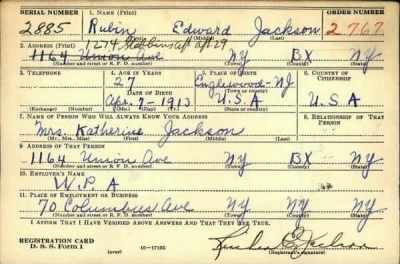 SERIAL NUMBER 1. NAME (Print) ORDER NUMBER
2885 Rubin Edward Jackson 2767
(First) (Middle) (Last)
1274 Apt. 29
2. ADDRESS (Print)
1164 Union Ave NY BX NY
(Number and street or R. F. D. number) (Town) (County) (State)
3. TELEPHONE 4. AGE IN YEARS 5. PLACE OF BIRTH 6. COUNTRY OF CITIZENSHIP
27 Englewood-NJ
DATE OF BIRTH (Town or county)
Apr. 7-1913 U.S.A U.S.A
(Exchange) (Number) (Mo.) (Day) (Yr.) (State or country)
7. NAME OF PERSON WHO WILL ALWAYS KNOW YOUR ADDRESS 8. RELATIONSHIP OF THAT PERSON
Mrs. Katherine Jackson
(Mr., Mrs., Miss) (First) (Middle) (Last)
9. ADDRESS OF THAT PERSON
1164 Union Ave NY BX NY
(Number and street or R. F. D. number) (Town) (County) (State)
10. EMPLOYER'S NAME
W.P.A
11. PLACE OF EMPLOYMENT OR BUSINESS
70 Columbus Ave NY NY NY
(Number and street or R. F. D. number) (Town) (County) (State)
I AFFIRM THAT I HAVE VERIFIED ABOVE ANSWERS AND THAT THEY ARE TRUE.
REGISTRATION CARD
D. S. S. Form 1 (over) 16-17105 (Registrant's signature)